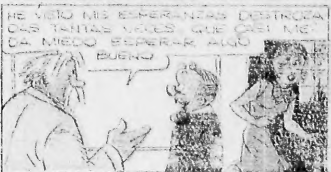 HE VISTO MIS ESPERANZAS DESTROZA
DAS TANTAS VECES QUE CASI ME
DA MIEDO ESPERAR ALGO
BUENO